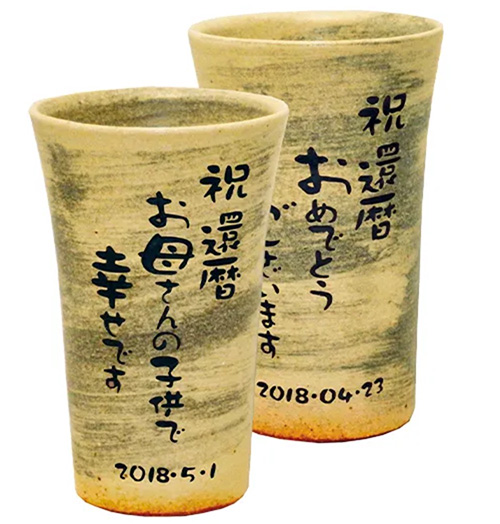 祝 還暦
お母さんの子供で
幸せです
2018・5・1
祝 還暦
おめでとう
ございます
2018・04・23